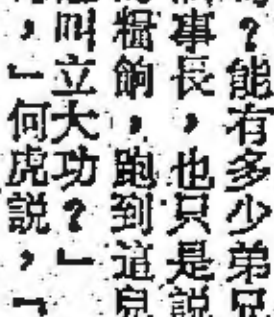 ？能有多少弟兄
事長，也只是説
糧餉，跑到這兒
叫立大功？」
，」何虎説，「